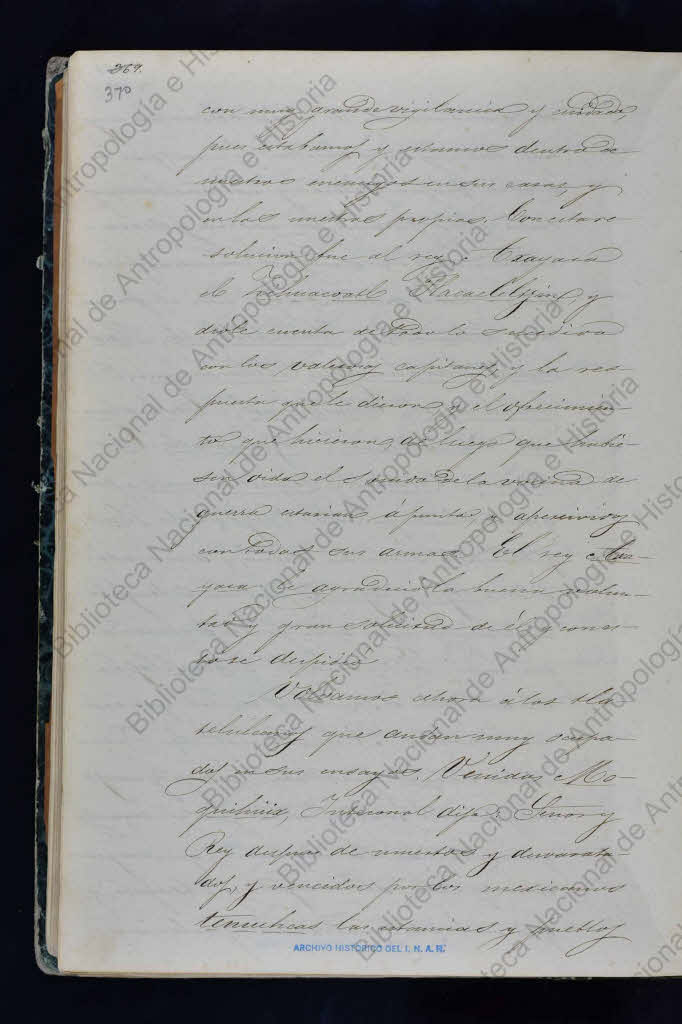 369.
370
con muy grande vigilancia y cuidado,
pues estabamos y estamos dentro de
nuestros enemigos en sus casas, y
en las nuestras propias. Con esta re
solucion fue al rey Axayaca
el Zihuacoatl Tlacaeleltzin, y
diole cuenta de todo lo sucedido
con los valerosos capitanes, y la res
puesta que le dieron, y el ofrecimien-
to que hicieron, de luego que hubie
sen oido el sonido de la vocina de
guerra estarian á punto, y apercividos
con todas sus armas. El rey Axa-
yaca le agradeció la buena volun-
tad y gran solicitud de él y con es-
to se despidió.
Volvamos ahora á los tla
telulcanos que andan muy ocupa-
dos en sus ensayos. Venidos Mo-
quihuix, Teconal dijo: Señor y
Rey despues de muertos y desvarata-
dos, y vencidos por los mexicanos
tenuchcas las estancias y pueblos
ARCHIVO HISTORICO DEL I. N. A. H.
Biblioteca Nacional de Antropología e Historia